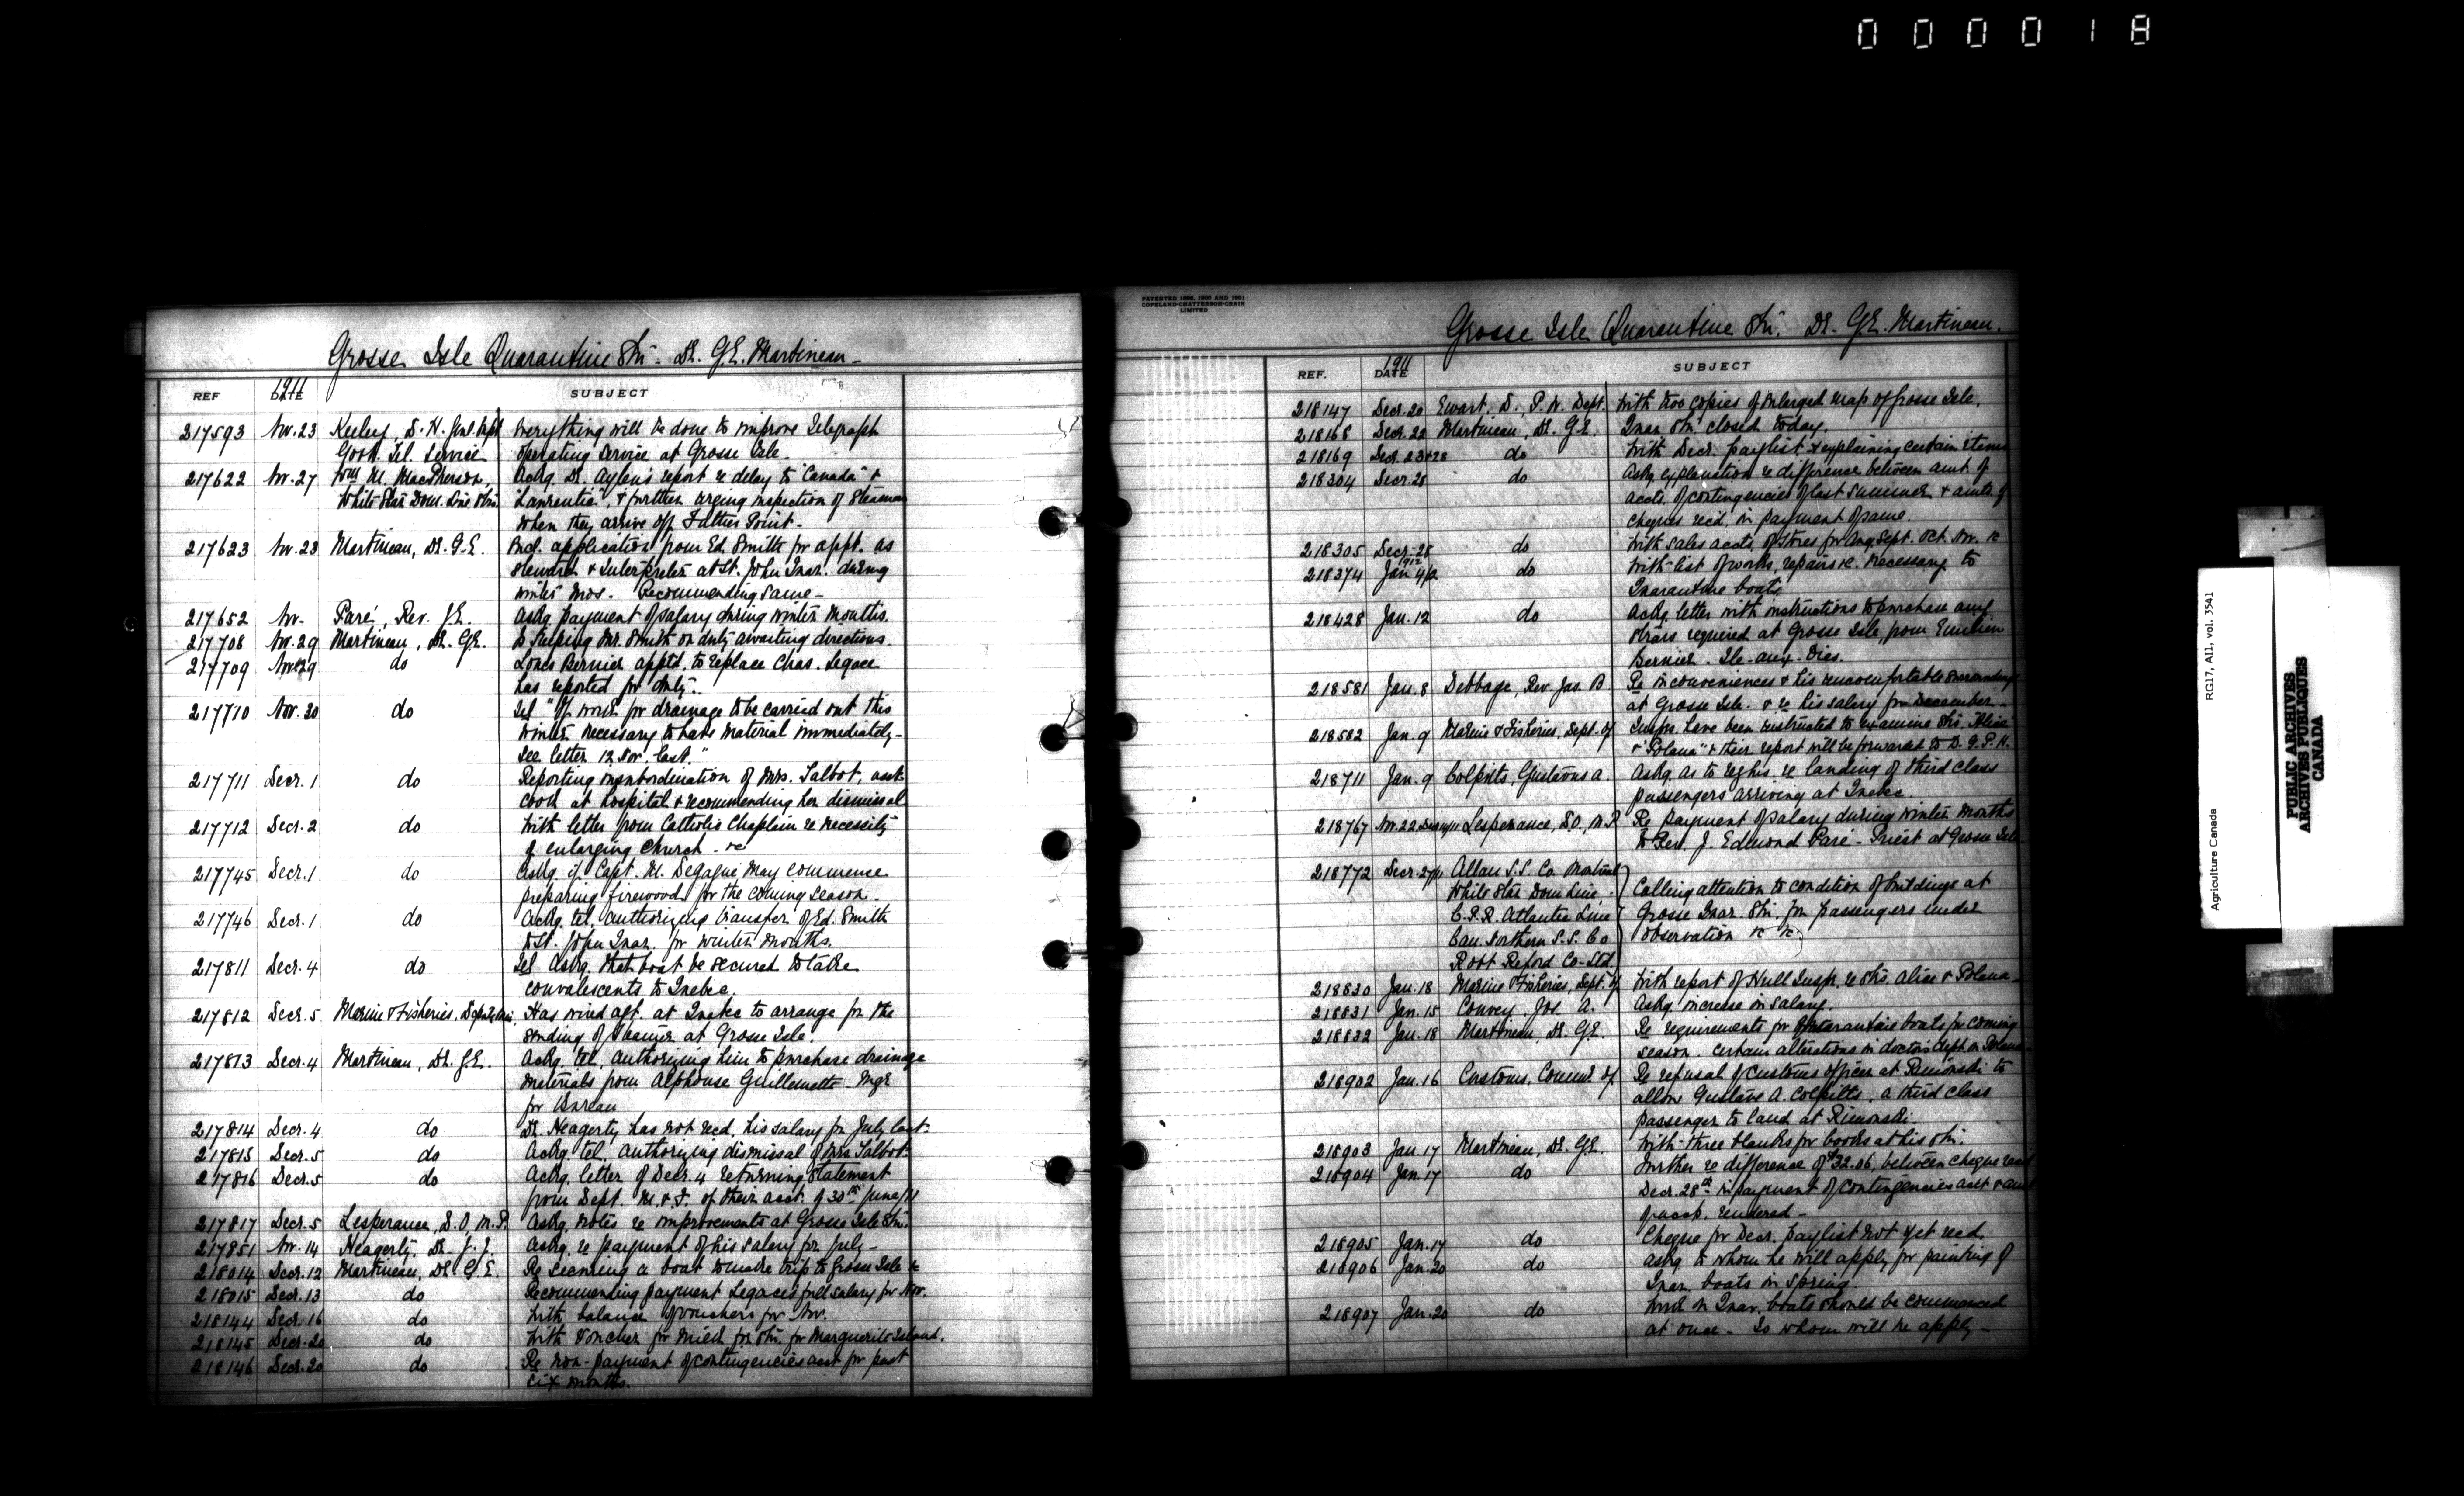 000018
Grosse Isle Quarantine Stn. Dr. G.E. Martineau
REF 1911 DATE SUBJECT
217593 Nov. 23 Keeley, D. H. Genl Supt Everything will be done to improve Telegraph
Govt. Tel. Service operating service at Grosse Isle.
217622 Nov. 27 Wm M. MacPherson, Ackg. Dr. Aylen's report re delay to "Canada" &
White Star Dom. Line Stn. "Laurentic", & further urging inspection of Steamers
when they arrive off Father Point.
217623 Nov. 23 Martineau, Dr. G.E. Encl. application from Ed. Smith for appt. as
Steward & Interpreter at St. John Quar. during
winter mos. Recommending same
217652 Nov. Paré, Rev. J.E. Askg. payment of salary during winter months.
217708 Nov. 29 Martineau, Dr. G.E. Is keeping Mr. Smith on duty awaiting directions.
217709 Nov. 29 do Louis Bernier apptd. to replace Chas. Legace
has reported for duty.
217710 Nov. 30 do Tel "If work for drainage to be carried out this
winter necessary to have material immediately
See letter 12 Nov. last."
217711 Decr. 1 do Reporting insubordination of Mrs. Talbot, asst.
cook at hospital & recommending her dismissal
217712 Decr. 2 do With letter from Catholic Chaplain re necessity
of enlarging Church &c
217745 Decr. 1 do Askg. if Capt. M. Degagné may commence
preparing firewood for the coming season.
217746 Decr. 1 do Ackg. tel. authorizing transfer of Ed. Smith
to St. John Quar. for winter months.
217811 Decr. 4 do Tel Askg. that boat be secured to take
convalescents to Quebec.
217812 Decr. 5 Marine & Fisheries, Has wired agt. at Quebec to arrange for the
sending of steamer at Grosse Isle.
217813 Decr. 4 Martineau, Dr. G.E. Ackg. tel. authorizing him to purchase drainage
materials from Alphonse Guillemette Mgr
for Bureau
217814 Decr. 4 do Dr. Heagerty has not recd. his salary for July last.
217815 Decr. 5 do Ackg. tel. authorizing dismissal of Mrs Talbot.
217816 Decr. 5 do Ackg. letter of Decr. 4 returning statement
from Dept. M. & F. of their acct. of 30th June/11
217817 Decr. 5 Lesperance, D.O., M.P. Askg. notes re improvements at Grosse Isle Stn.
217851 Nov. 14 Heagerty, Dr. J. J. Askg. re payment of his salary for July
218014 Decr. 12 Martineau, Dr. G.E. Re securing a boat to make trip to Grosse Isle &c
218015 Decr. 13 do Recommending payment Legace's full salary for Nov.
218144 Decr. 16 do With balance of vouchers for Nov.
218145 Decr. 20 do With voucher for milk for Stn. for Marguerite Island.
218146 Decr. 20 do Re non-payment of contingencies acct for past
six months.
PATENTED 1898, 1900 AND 1901
COPELAND-CHATTERSON-CRAIN
LIMITED
Grosse Isle Quarantine Stn. Dr. G.E. Martineau.
REF. 1911 DATE SUBJECT
218147 Decr. 20 Ewart, D., P.W. Dept. With two copies of enlarged map of Grosse Isle.
218168 Decr. 22 Martineau, Dr. G.E. Quar. Stn. closed today.
218169 Decr. 23 & 28 do With Decr. paylist & explaining certain items
218304 Decr. 28 do Askg. explanation re difference between amt. of
accts. of contingencies of last summer & amts of
cheques recd. in payment of same.
218305 Decr. 28 do With sales accts. of stores for Aug. Sept. Oct. Nov. &c
218374 1912 Jan 4/12 do With list of works, repairs &c. necessary to
Quarantine boats
218428 Jan. 12 do Ackg. letter with instructions to purchase any
required at Grosse Isle, from Emilien
Bernier. Ile-aux-Oies.
218581 Jan. 8 Debbage, Rev. Jas. B Re inconveniences & his uncomfortable surroundings
at Grosse Isle. & re his salary for December
218582 Jan. 9 Marine & Fisheries, Dept. of Insprs. have been instructed to examine Strs. "Alice"
& "Polana" & their report will be forwarded to D.G.P.H.
218711 Jan. 9 Colpitts, Gustavus A. Askg. as to regns. re landing of third class
passengers arriving at Quebec.
218767 Nov. 22, Lesperance, D.O., M.P. Re payment of salary during winter months
to Rev. J. Edmond Paré - Priest at Grosse Isle
218772 Decr. 27/11 Allan S.S. Co. Montreal
White Star Dom Line Calling attention to condition of buildings at
C.P.R. Atlantic Line Grosse Quar. Stn. for passengers under
Can. Northern S.S. Co observation &c &c
Robt Reford Co-Ltd.
218830 Jan. 18 Marine & Fisheries, Dept. of With report of Hull Inspr. re Strs. Alice & Polana
218831 Jan. 15 Convey, Jos. A. Askg. increase in salary.
218832 Jan. 18 Martineau, Dr. G.E. Re requirements for Quarantine boats for coming
season. Certain alterations in doctor's dept. on Polana
218902 Jan. 16 Customs, Commr. of Re refusal of customs officer at Rimouski to
allow Gustave A. Colpitts, a third class
passenger to land at Rimouski.
218903 Jan 17 Martineau, Dr. G.E. With three blanks for books at his Stn.
218904 Jan. 17 do Further re difference of $32.06, between cheque recd
Decr. 28th in payment of contingencies acct & amt
of acct. rendered
218905 Jan. 17 do Cheque for Decr. paylist not yet recd.
218906 Jan. 20 do Askg. to whom he will apply for painting of
Quar. boats in spring.
218907 Jan. 20 do Work on Quar. boats should be commenced
at once. To whom will he apply
Agriculture Canada RG17, A11, vol. 3541
PUBLIC ARCHIVES
ARCHIVES PUBLIQUES
CANADA